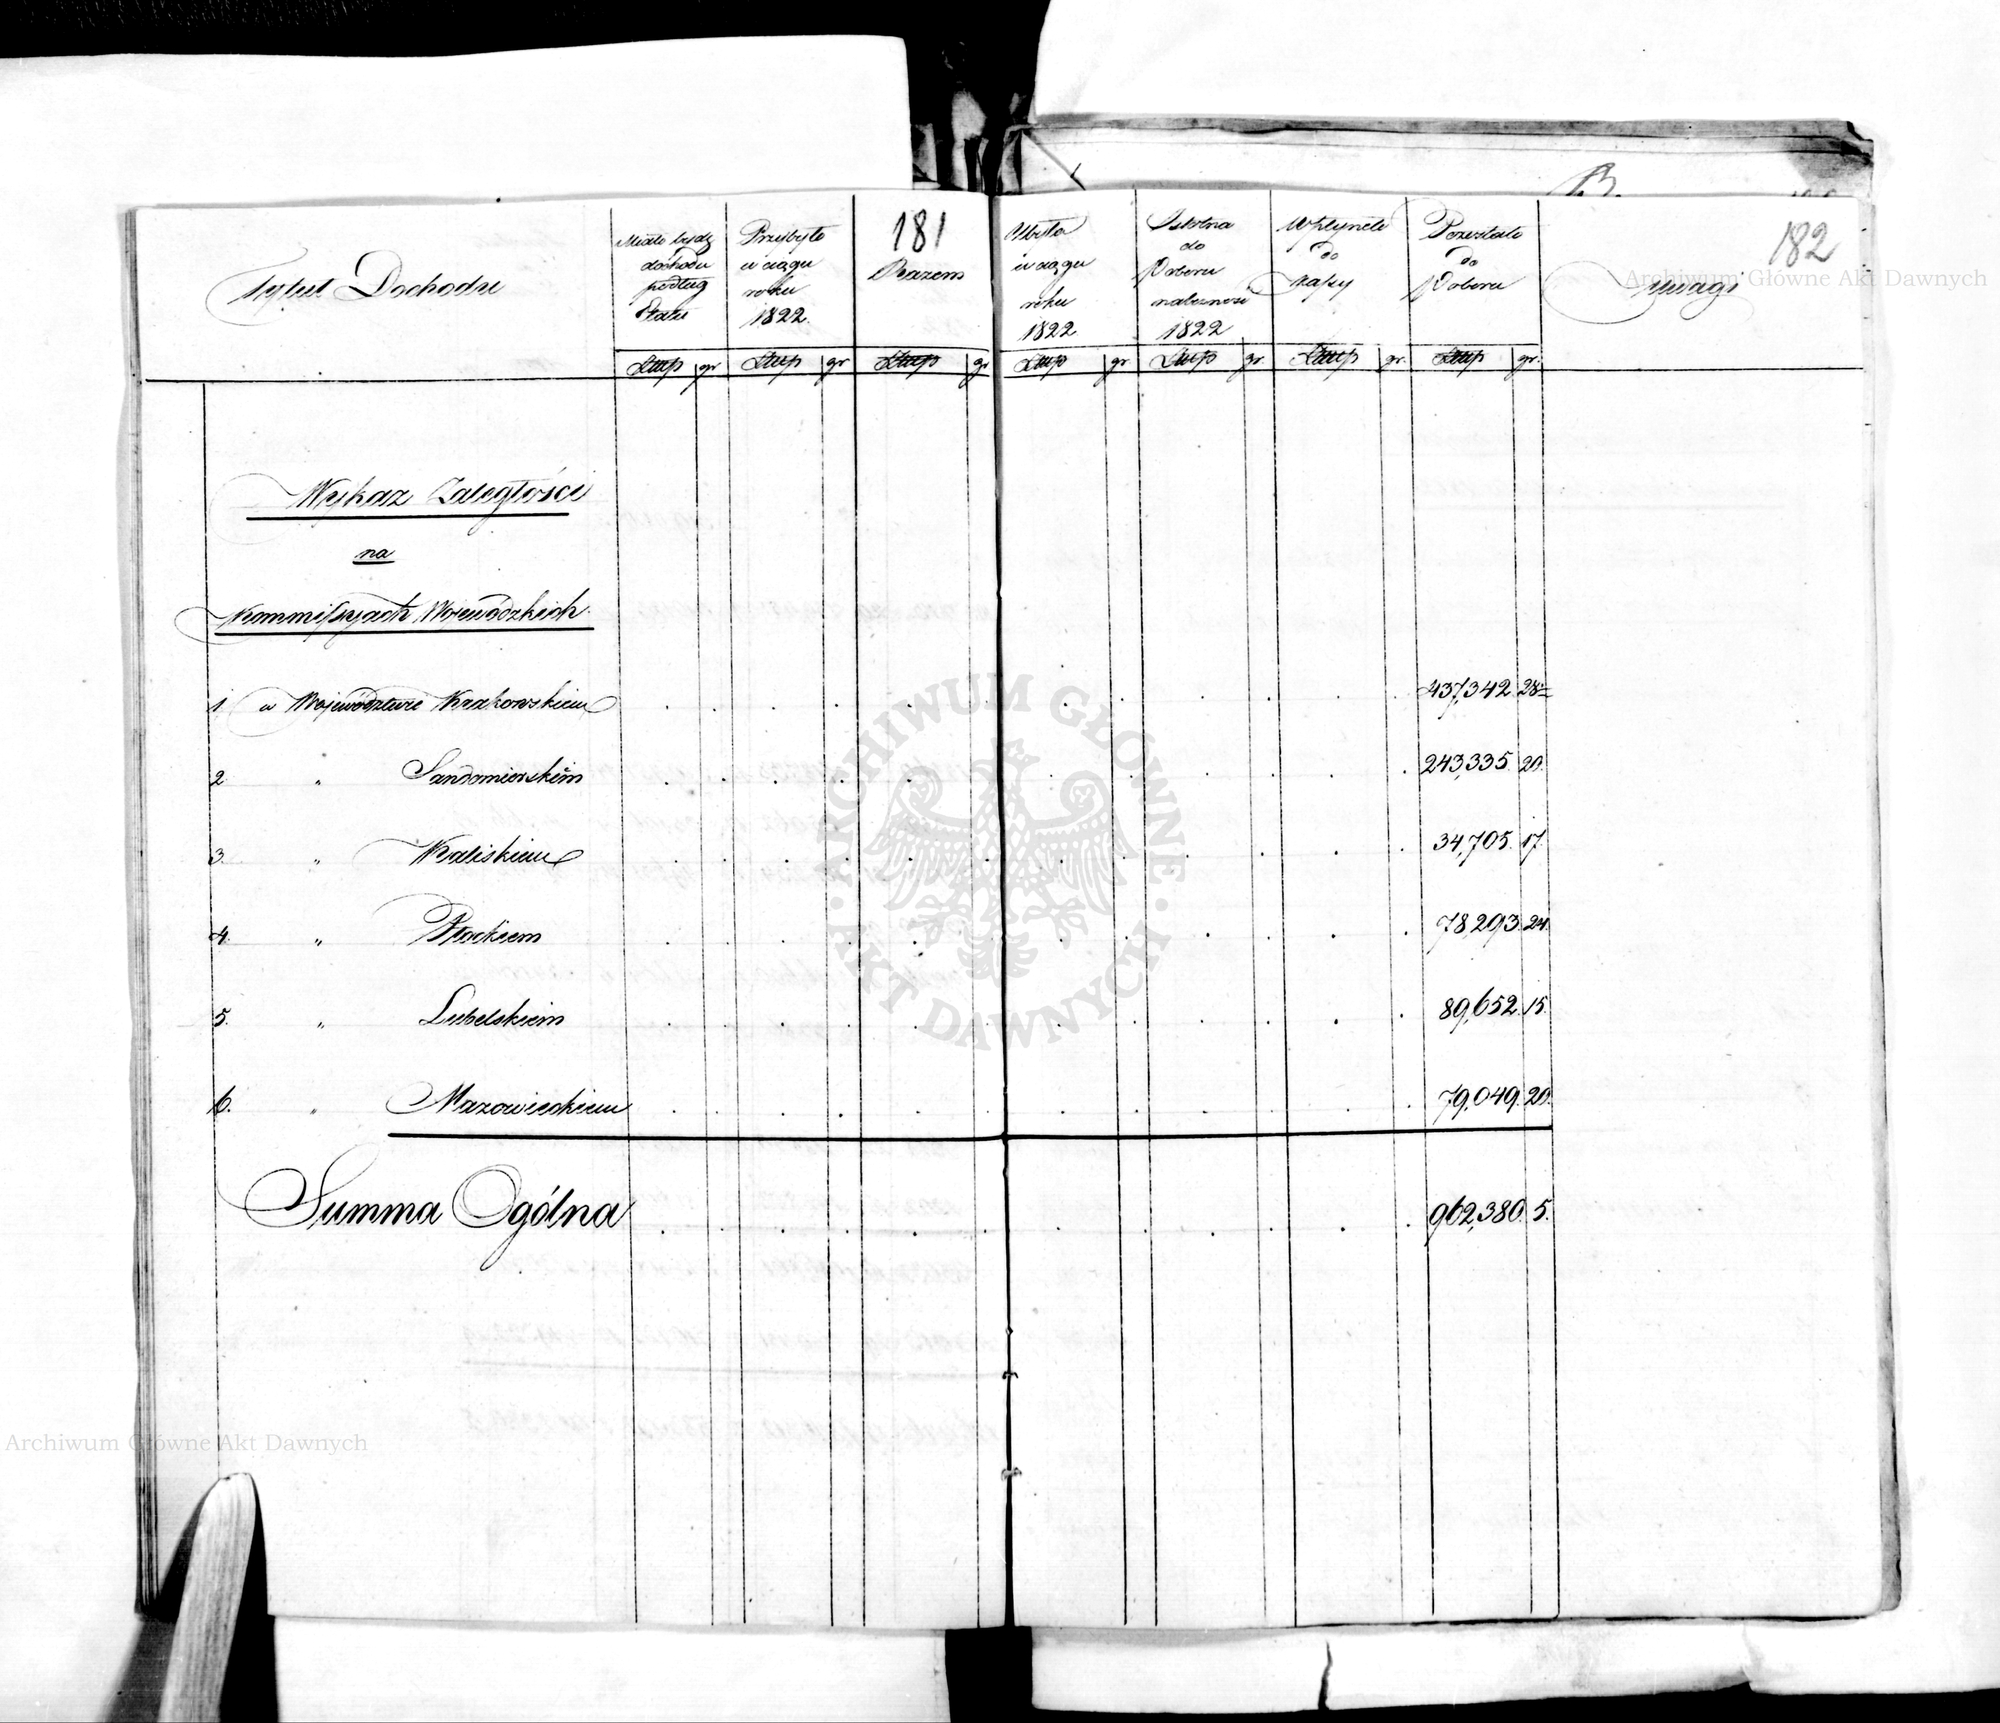 181
182
Tytuł Dochodu
Miało bydź
dochodu
podług
Etatu
Przybyło
w ciągu
roku
1822.
Razem
Ubyło
w ciągu
roku
1822
Istotna
do
Poboru
należność
1822
Wpłynęło
do
Kassy
Pozostało
do
Poboru
Uwagi
Złłp gr Złłp gr Złłp gr Złłp gr Złłp gr Złłp gr. Złłp gr.
Wykaz Zaległości
na
Kommissyach Wojewódzkich.
1. w Województwie Krakowskiem 437,342 28
2 " Sandomierskiém 243,335. 20.
3. " Kaliskiem 34,705. 17.
4. " Płockiem 78,293. 24.
5. " Lubelskiem 89,652. 15.
6. " Mazowieckiem 79,049. 20.
Summa Ogólna 962,380. 5.
Archiwum Główne Akt Dawnych
ARCHIWUM GŁÓWNE AKT DAWNYCH
Archiwum Główne Akt Dawnych